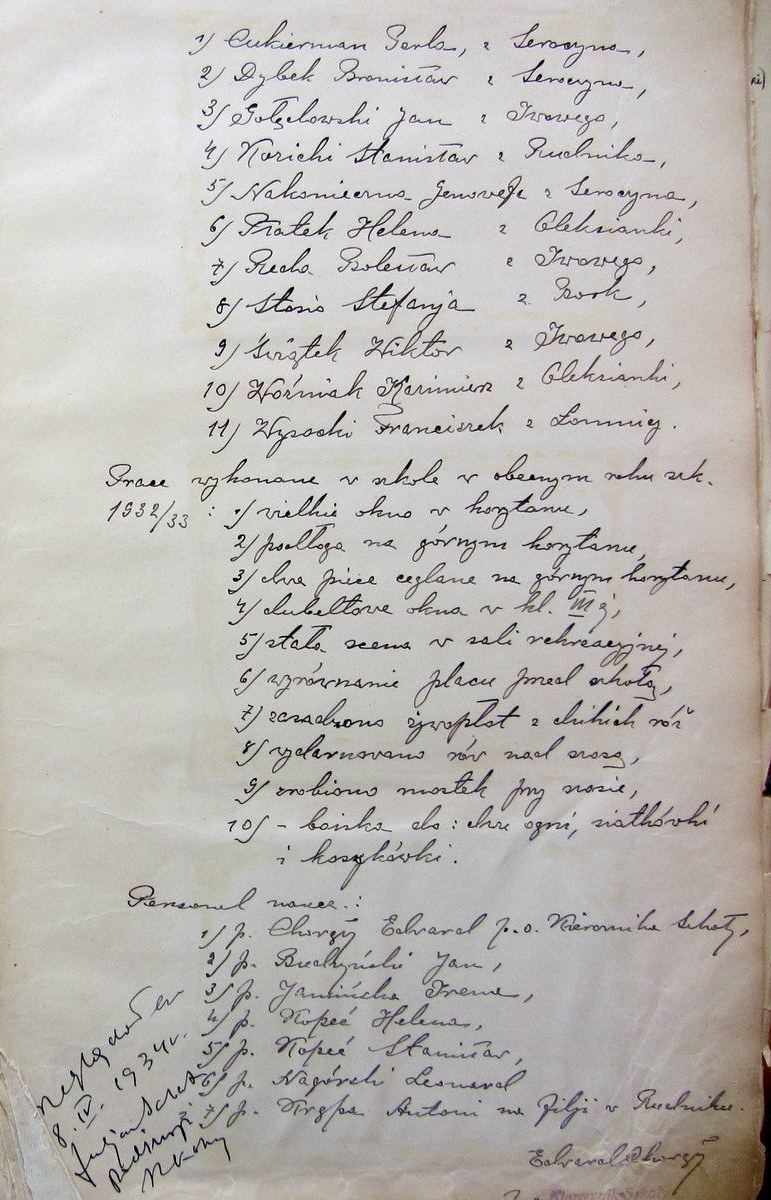 1) Cukierman Perla, z Seroczyna,
2) Dybek Bronisław z Seroczyna,
3) Gołęchowski Jan z Iwowego,
4) Kozicki Stanisław z Rudnika,
5) Nakonieczna Genowefa z Seroczyna,
6) Piątek Helena z Oleksianki,
7) Recha Bolesław z Iwowego,
8) Stosio Stefanja z Bork,
9) Świątek Wiktor z Iwowego,
10) Woźniak Kazimierz z Oleksianki,
11) Wysocki Franciszek z Łomnicy.
Prace wykonane w szkole w obecnym roku szk.
1932/33 : 1) wielkie okno w korytarzu,
2) podłoga na górnym korytarzu,
3) dwa piece ceglane na górnym korytarzu,
4) dubeltowe okna w kl. III ej,
5) stała scena w sali rekreacyjnej,
6) wyrównanie placu przed szkołą,
7) zasadzono żywopłot z dzikich róż
8) wydarnowano rów nad szosą,
9) zrobiono mostek przy szosie,
10) - boiska do: dwu ogni, siatkówki
i koszykówki.
Personel naucz.:
1) p. Chorąży Edward p.o. Kierownika Szkoły,
2) p. Budzyński Jan,
3) p. Jamińska Irena,
4) p. Kopeć Helena,
5) p. Kopeć Stanisław,
6) p. Nagórski Leonard
7) p. Krypa Antoni na filji w Rudniku.
Edward Chorąży
8. IV. 1934 r.